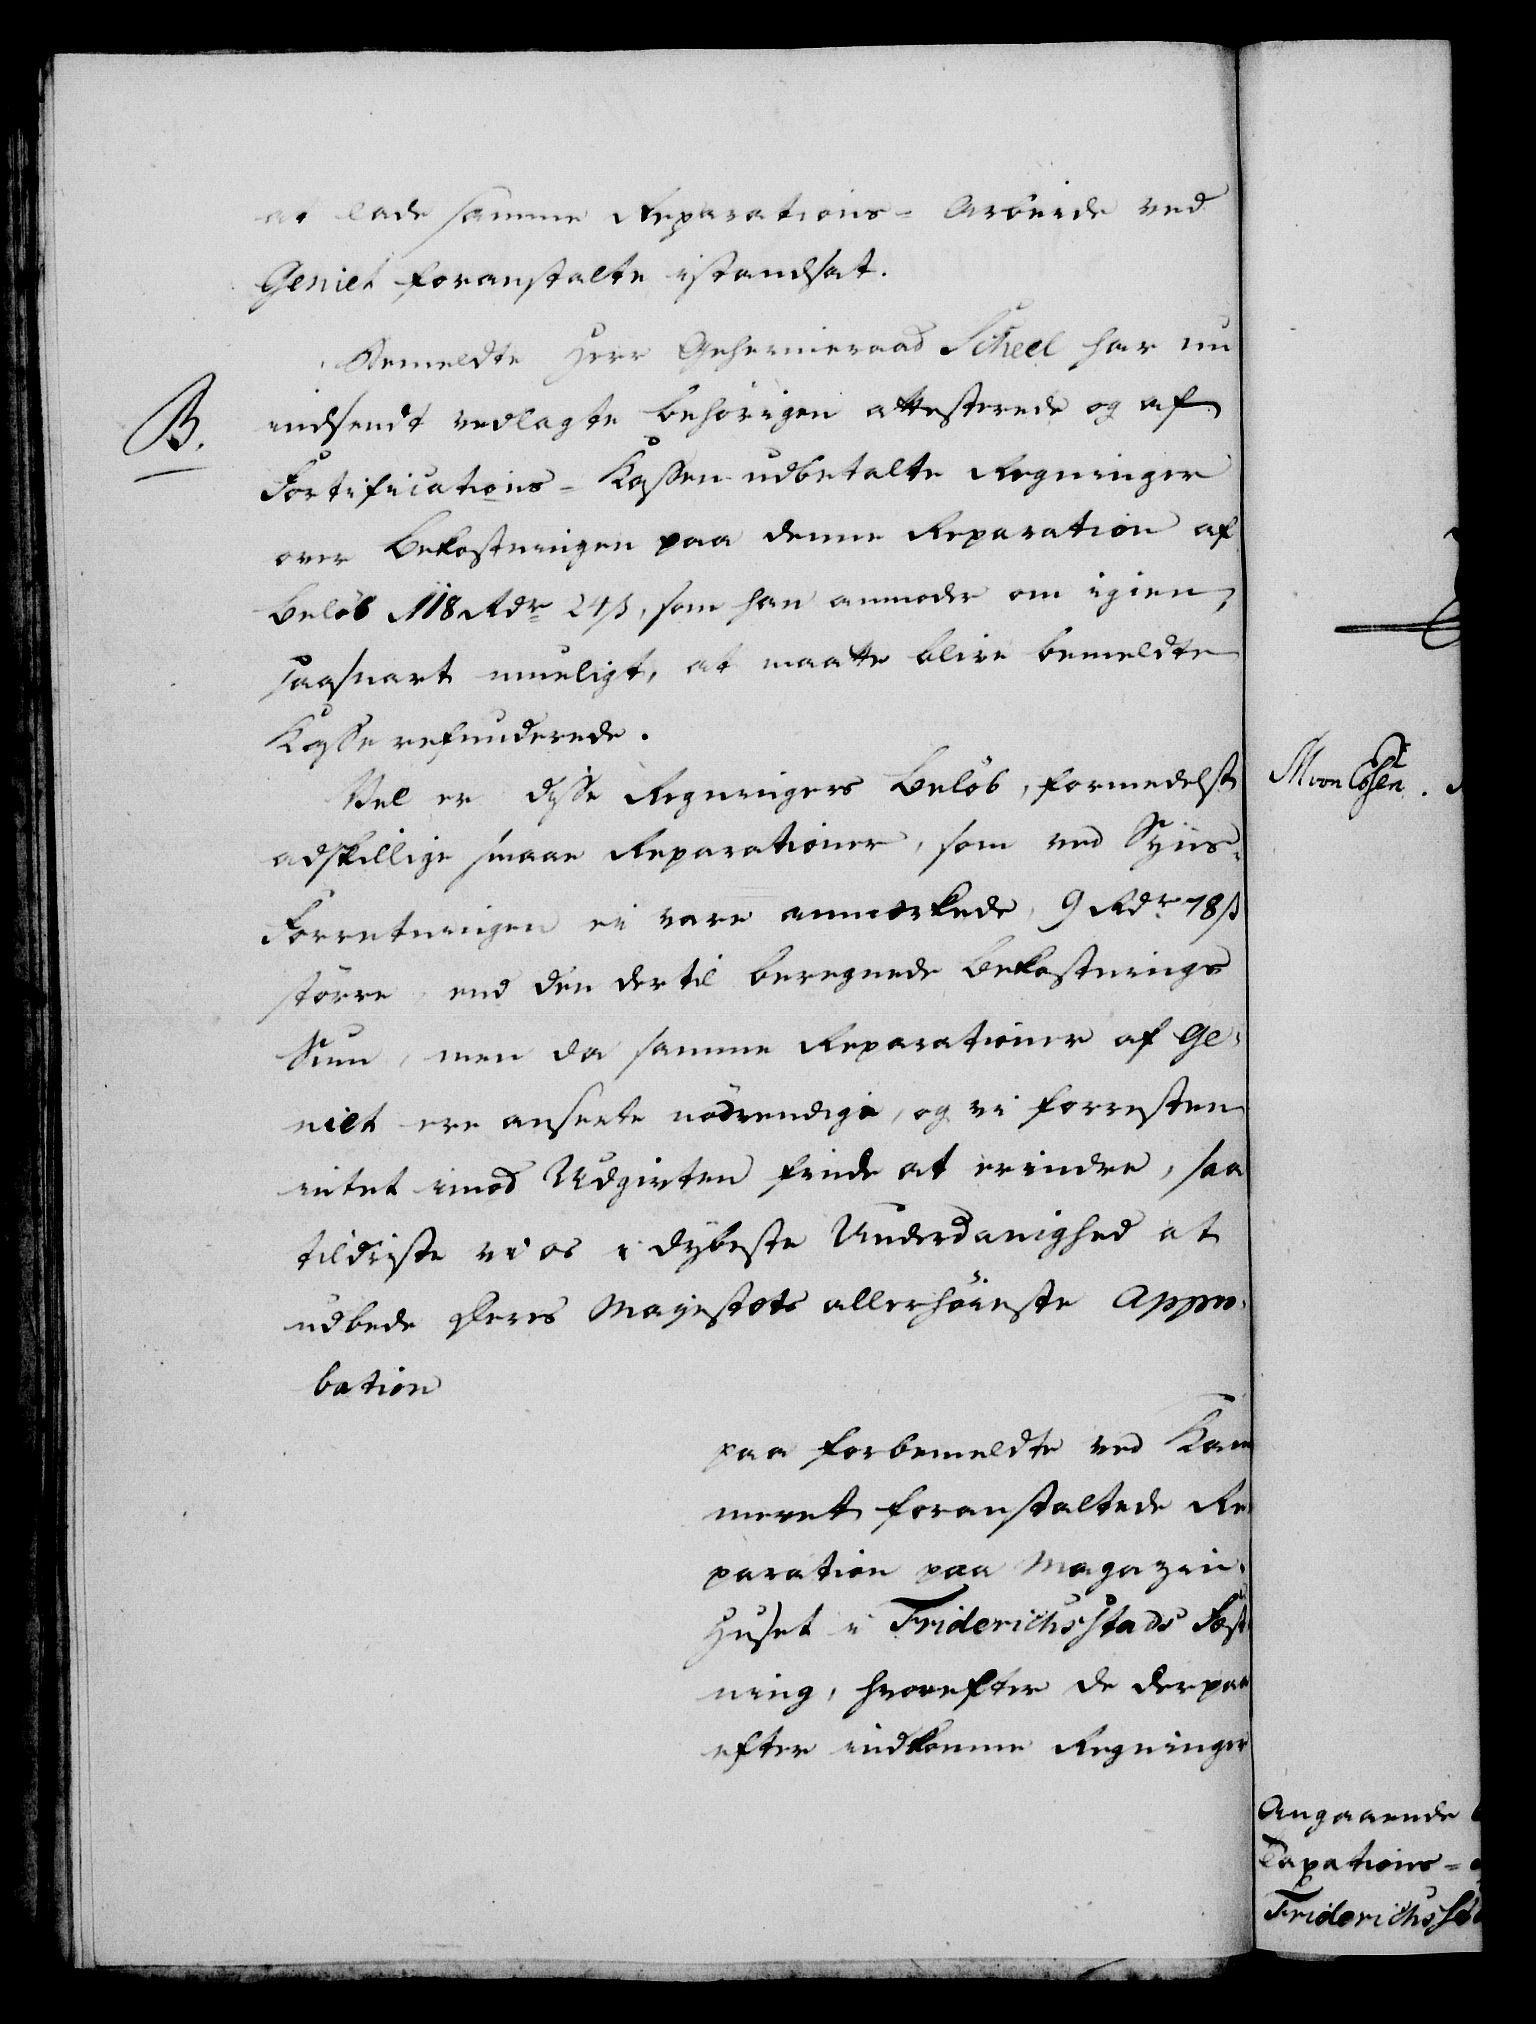 at lade samme Reparations-Arbeide ved
Geniet foranstalte istandsat.
Bemeldte Herr Geheimeraad Scheel har nu
B.
indsendt vedlagte behørigen attesterede og af
Fortifications-Kassen udbetalte Regninger
over Bekostningen paa denne Reparation af
Beløb 118 Rdr 24 ß, som han anmoder om igien,
saasnart mueligt, at maatte blive bemeldte
Kasse refunderede.
Vel er disse Regningers Beløb, formedelst
adskillige smaae Reparationer, som ved Syns-
Forretningen ei vare anmærkede, 9 Rdr 78 ß
større, end den dertil beregnede Bekostnings
Sum, men da samme Reparationer af Ge-
niet ere ansete nødvendige, og vi forresten
intet imod Udgivten finde at erindre, saa
tildriste vi os i dybeste Underdanighed at
udbede Deres Majestæts allerhøieste Appro-
bation
paa forbemeldte ved Kam
meret foranstaltede Re-
paration paa Magazin-
Huset i Friderichsstads Fæst-
ning, hvorefter de derpaa
efter indkomne Regninger
Angaaende
Taxations-
Friderichsst